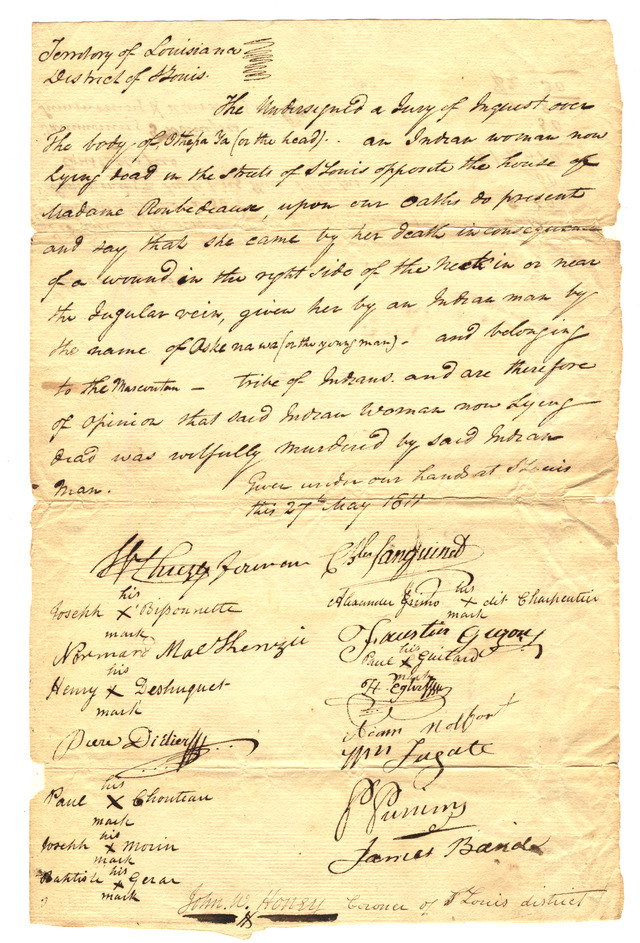 Territory of Louisiana
District of St Louis.
The Undersigned a Jury of Inquest over
The body of Othepa Za (or the head) . . an Indian woman now
Lying dead in the streets of St Louis opposite the house of
Madame Roubedeaux, upon our oaths do present
and say that she came by her death in consequence
of a wound in the right side of the neck in or near
the Jugular vein, given her by an Indian man by
the name of Oske na wa (or the young man) - and belonging
to the Mascoutan - tribe of Indians. and are therefore
of opinion that said Indian Woman now Lying
dead was wilfully murdered by said Indian
Man. Given under our hands at St Louis
this 27th May 1811
foreman Sanguinet
Joseph his X mark Bissonnette Alexander his X mark dit Charpentier
Normand MacKenzie Faustin
Henry his X mark Deshuquet Paul his X mark Guitard
Piere Didier
Wm Fugate
Paul his X mark Chouteau
Joseph his X mark Morin James Baird
Baptiste his X mark Gerar
John W. Honey Coroner of St Louis district